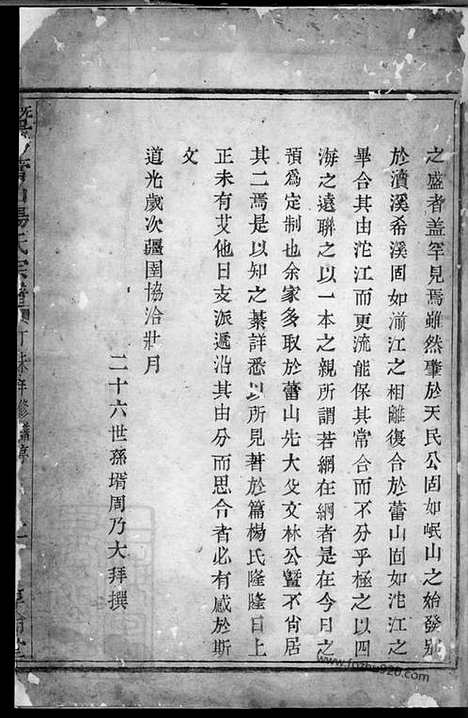 之盛者盖罕見焉雖然肇於天民公固如岷山之始發别
於瀆溪希溪固如湔江之相離復合於蕾山固如沱江之
畢合其由沱江而更流能保其常合而不分乎極之以四
海之遠聯之以一本之親所謂若網在綱者是在今日之
預爲定制也余家多取於蕾山先大父文林公暨不肖居
其二焉是以見之綦詳悉以所見著於篇楊氏隆隆日上
正未有艾他日支派遞沿其由分而思合者必有感於斯
文
道光歲次疆圉協洽壯月
二十六世孫壻周乃大拜撰
山楊氏宗譜
丁未年修
www.fozhu920.com